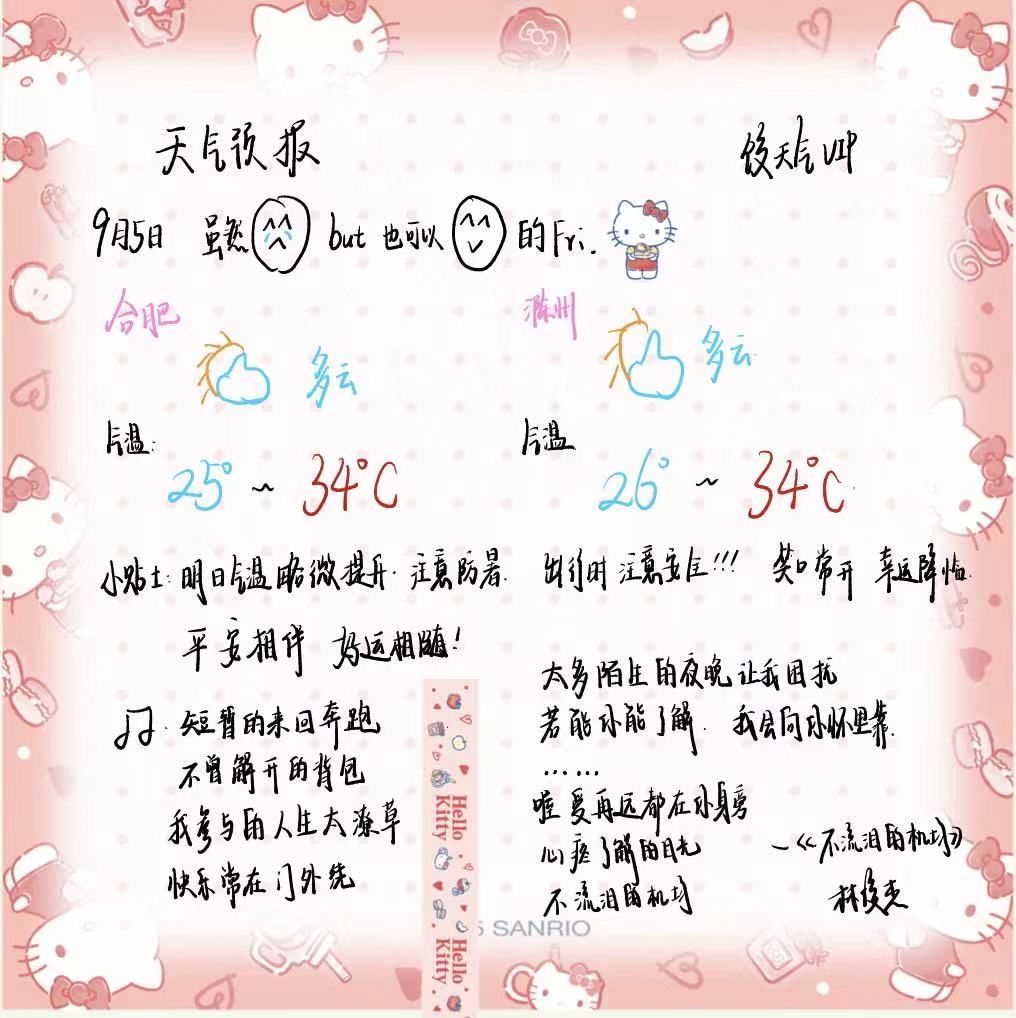 天气预报
饺天气VIP
9月5日 虽然 but 也可以 的Fri.
合肥
多云
气温:
25°~34°C
滁州
多云
气温
26°~34°C
小贴士:明日气温略微提升.注意防暑.出行时注意安全!!!笑口常开 幸运降临.
平安相伴 好运相随!
短暂的来回奔跑
不曾解开的背包
我参与的人生太潦草
快乐常在门外绕
太多陌生的夜晚让我困扰
若能你能了解.我会向你怀里靠.
……
唯爱再远都在你身旁
心疼了解的目光
不流泪的机场
—《不流泪的机场》
林俊杰
Hello Kitty
Hello Kitty
5 SANRIO